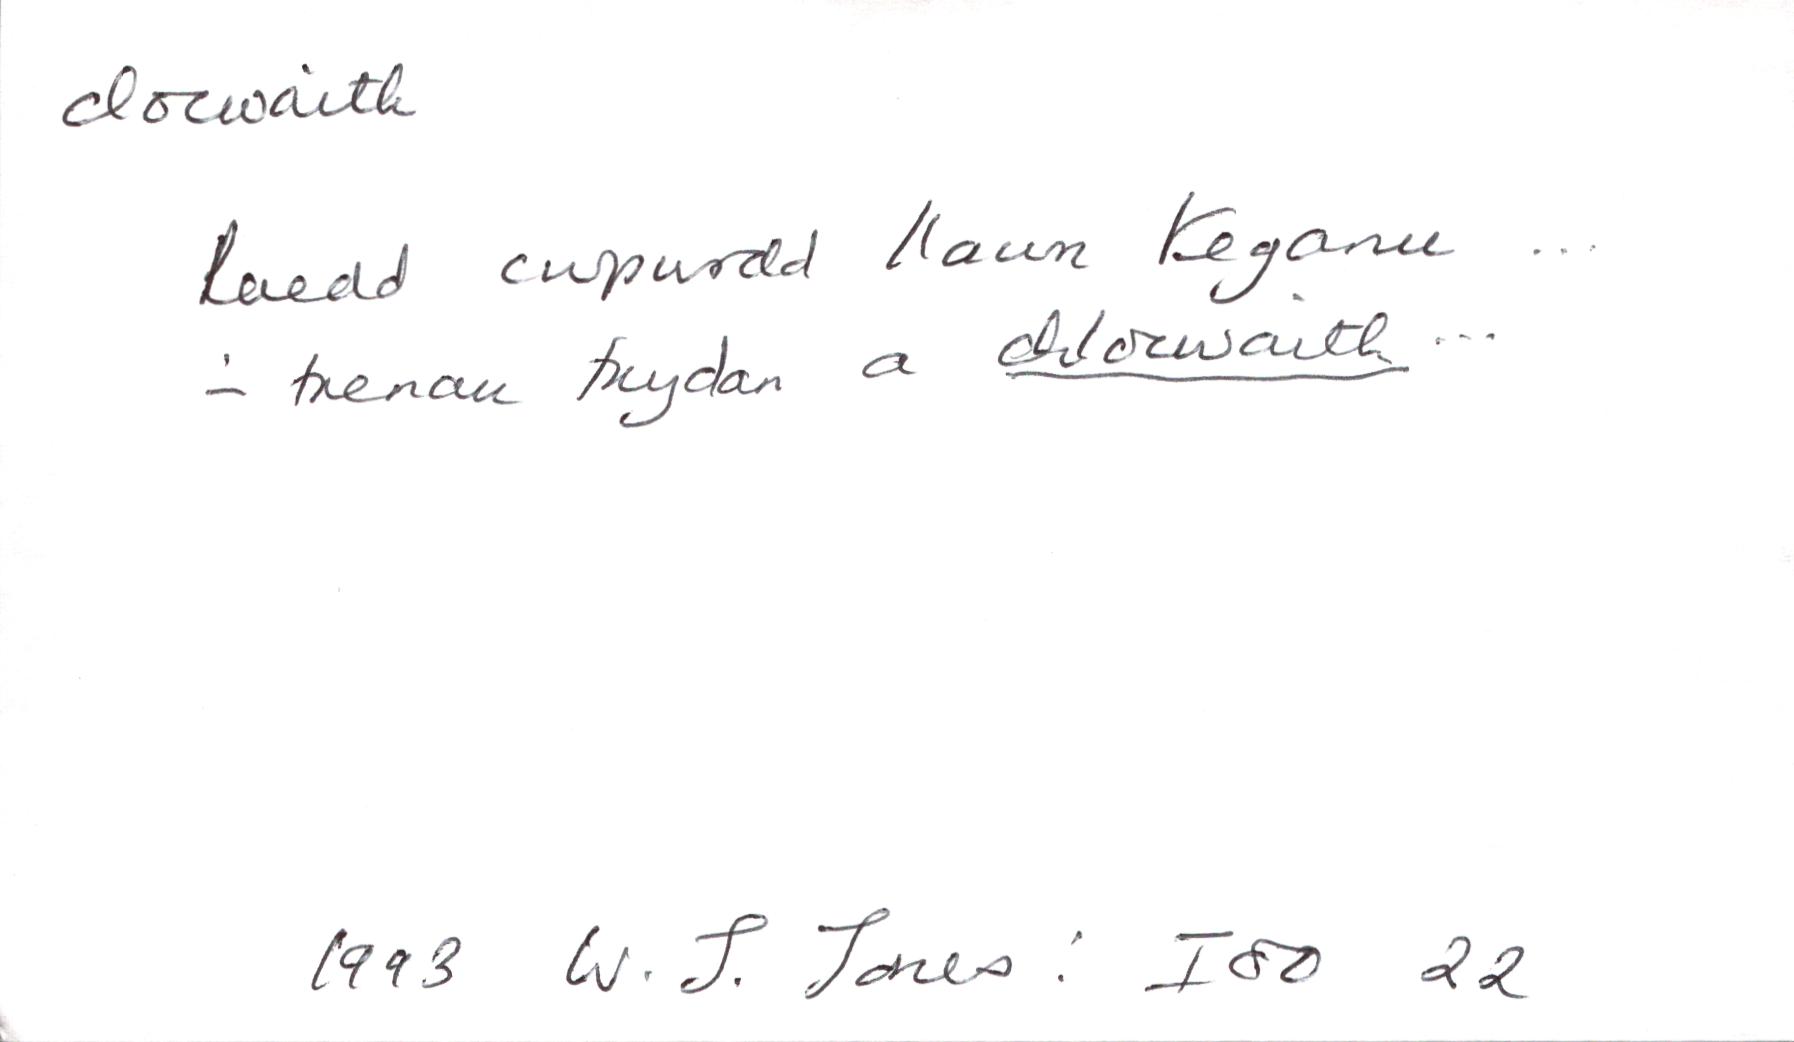 clocwaith
Roedd cwpwrdd llawn teganau ...
– trenau trydan a chlocwaith ...
1993 W. J. Jones: ISO 22